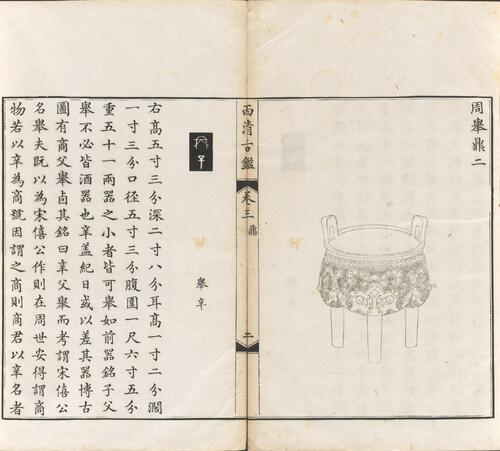 周舉鼎二
西清古鑑
卷三
鼎
二
舉辛
右高五寸三分深二寸八分耳高一寸二分濶
一寸三分口徑五寸三分腹圍一尺六寸五分
重五十一兩器之小者皆可舉如前器銘子父
舉不必皆酒器也辛盖紀日或以差其器博古
圖有商父舉卣其銘曰辛父舉而考謂宋僖公
名舉夫既以為宋僖公作則在周世安得謂商
物若以辛為商號因謂之商則商君以辛名者